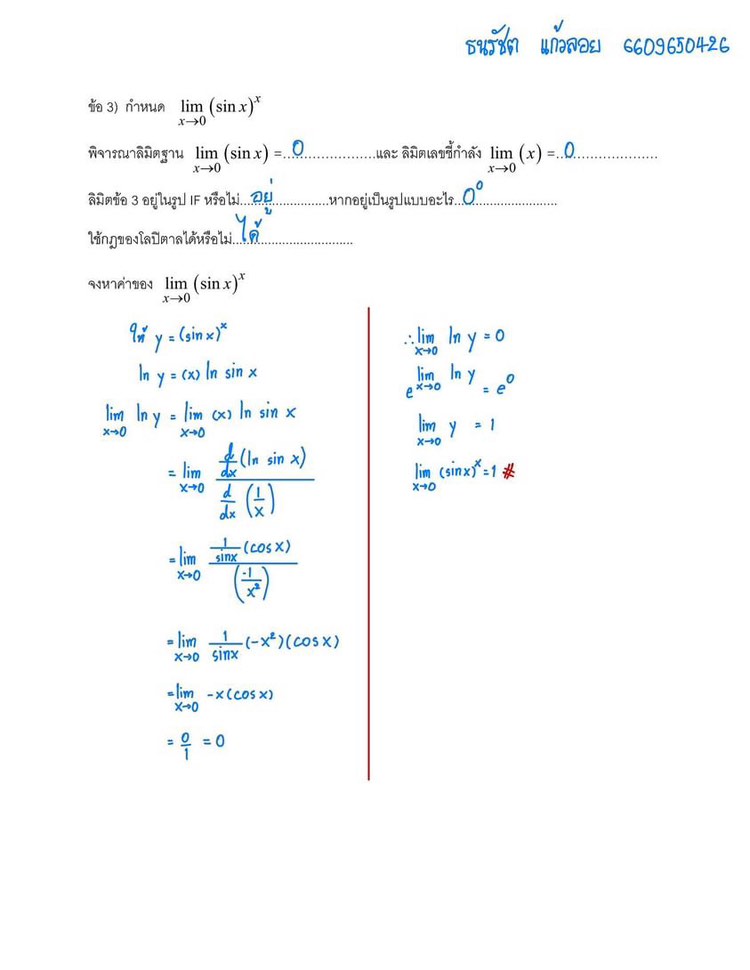 ธนรัชต แก้วลอย 6609650426
ข้อ 3) กำหนด lim x→0 (sin x)^x
พิจารณาลิมิตฐาน lim x→0 (sin x) =....0....................และ ลิมิตเลขชี้กำลัง lim x→0 (x) =...0....................
ลิมิตข้อ 3 อยู่ในรูป IF หรือไม่...อยู่......................หากอยู่เป็นรูปแบบอะไร...0⁰..........................
ใช้กฎของโลปีตาลได้หรือไม่....ได้..............................
จงหาค่าของ lim x→0 (sin x)^x
ให้ y = (sin x)^x
ln y = (x) ln sin x
lim x→0 ln y = lim x→0 (x) ln sin x
= lim x→0 (d/dx (ln sin x)) / (d/dx (1/x))
= lim x→0 (1/sinx (cos x)) / (-1/x²)
= lim x→0 1/sinx (-x²)(cos x)
= lim x→0 -x (cos x)
= 0/1 = 0
∴ lim x→0 ln y = 0
e^(lim x→0 ln y) = e^0
lim x→0 y = 1
lim x→0 (sin x)^x = 1 #